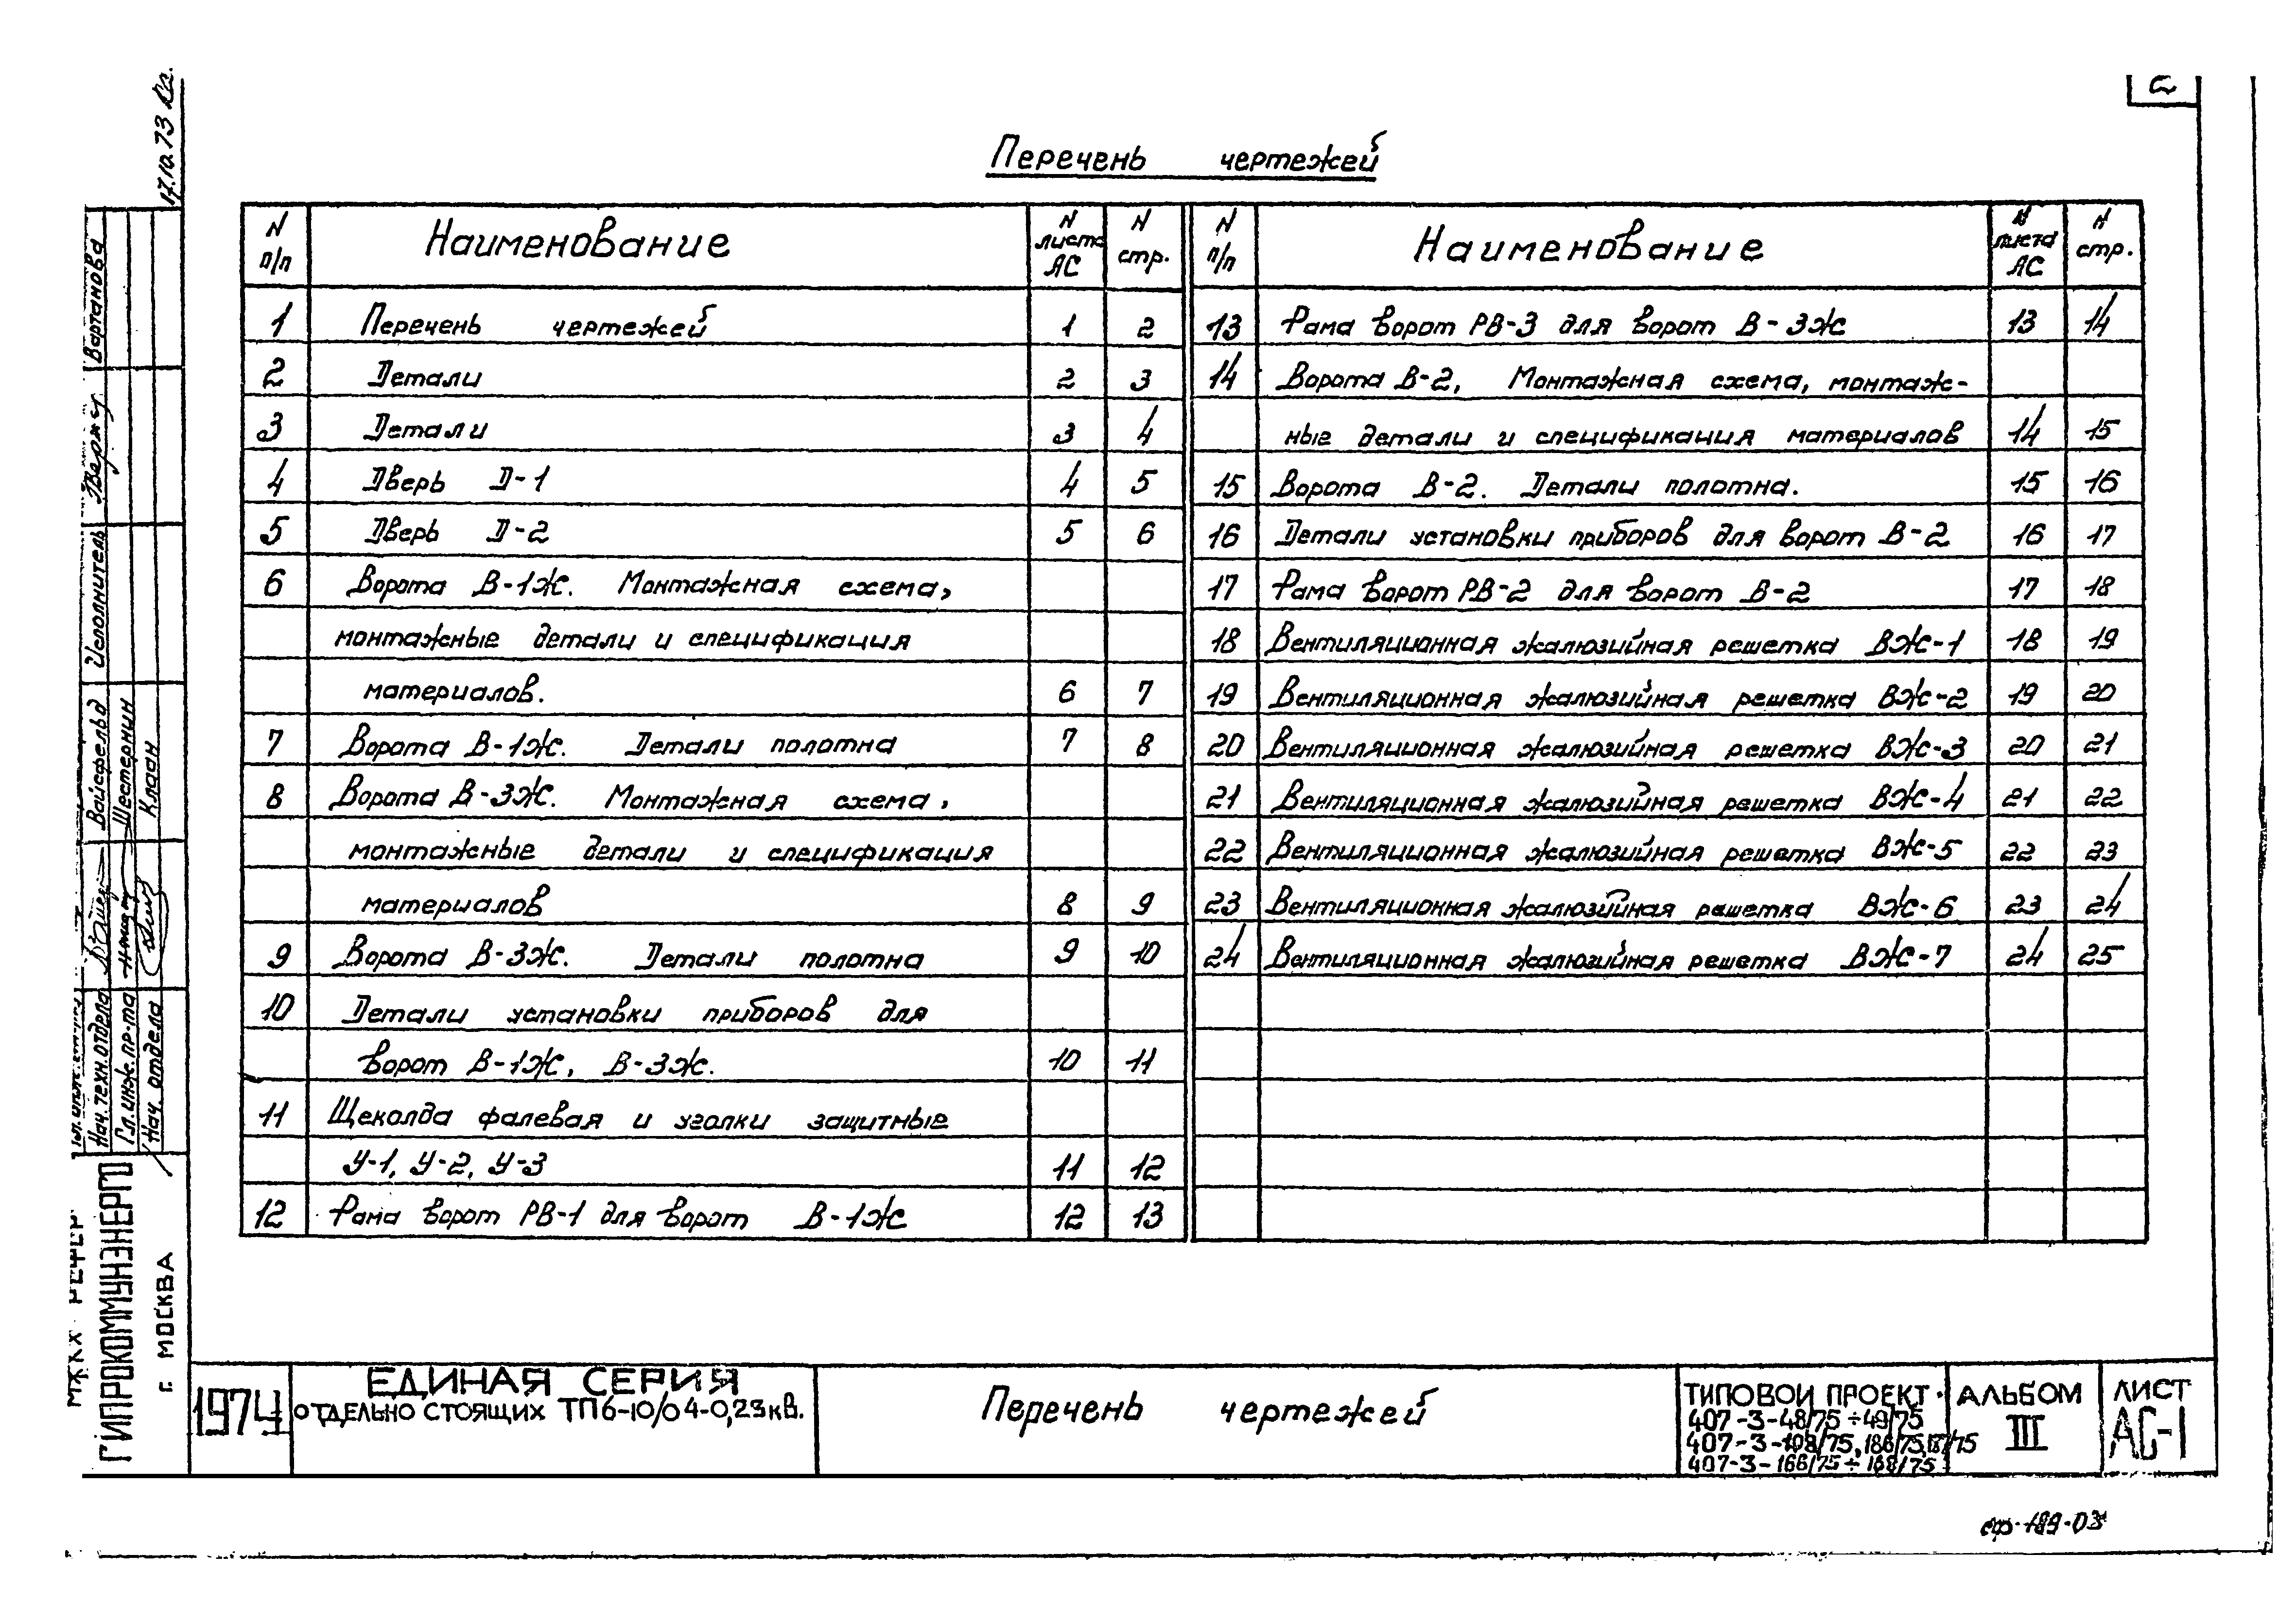 2
Перечень чертежей
N п/п Наименование N листа АС N стр.
1 Перечень чертежей 1 2
2 Детали 2 3
3 Детали 3 4
4 Дверь Д-1 4 5
5 Дверь Д-2 5 6
6 Ворота В-1Ж. Монтажная схема,
монтажные детали и спецификация
материалов. 6 7
7 Ворота В-1Ж. Детали полотна 7 8
8 Ворота В-3Ж. Монтажная схема,
монтажные детали и спецификация
материалов 8 9
9 Ворота В-3Ж. Детали полотна 9 10
10 Детали установки приборов для
ворот В-1Ж, В-3Ж. 10 11
11 Щеколда фалевая и уголки защитные
У-1, У-2, У-3 11 12
12 Рама ворот РВ-1 для ворот В-1Ж 12 13
N п/п Наименование N листа АС N стр.
13 Рама ворот РВ-3 для ворот В-3Ж 13 14
14 Ворота В-2, Монтажная схема, монтаж-
ные детали и спецификация материалов 14 15
15 Ворота В-2. Детали полотна. 15 16
16 Детали установки приборов для ворот В-2 16 17
17 Рама ворот РВ-2 для ворот В-2 17 18
18 Вентиляционная жалюзийная решетка ВЖ-1 18 19
19 Вентиляционная жалюзийная решетка ВЖ-2 19 20
20 Вентиляционная жалюзийная решетка ВЖ-3 20 21
21 Вентиляционная жалюзийная решетка ВЖ-4 21 22
22 Вентиляционная жалюзийная решетка ВЖ-5 22 23
23 Вентиляционная жалюзийная решетка ВЖ-6 23 24
24 Вентиляционная жалюзийная решетка ВЖ-7 24 25
17.10.73
Вартанова
Исполнитель
Нач. техн. отдела Вайсфельд
Гл. инж. пр-та Шестернин
Нач. отдела Клаан
МЖКХ РСФСР
ГИПРОКОММУНЭНЕРГО
г. МОСКВА
1974
ЕДИНАЯ СЕРИЯ
ОТДЕЛЬНО СТОЯЩИХ ТП 6-10/0,4-0,23 кВ.
Перечень чертежей
ТИПОВОЙ ПРОЕКТ
407-3-48/75÷49/75
407-3-108/75, 186/75, 187/75
407-3-166/75÷168/75
АЛЬБОМ
III
ЛИСТ
АС-1
сф-189-03